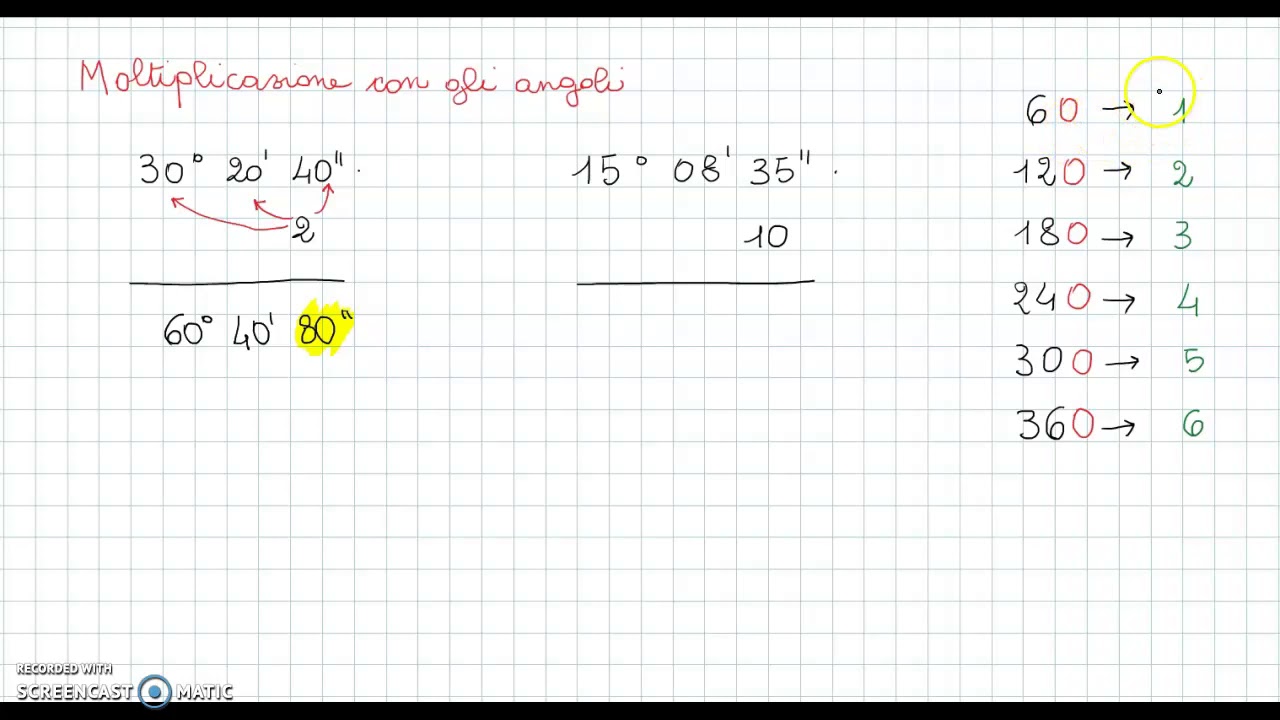 Moltiplicazione con gli angoli
30° 20' 40" ·
2
60° 40' 80"
15° 08' 35" ·
10
60 → 1
120 → 2
180 → 3
240 → 4
300 → 5
360 → 6
RECORDED WITH
SCREENCAST MATIC